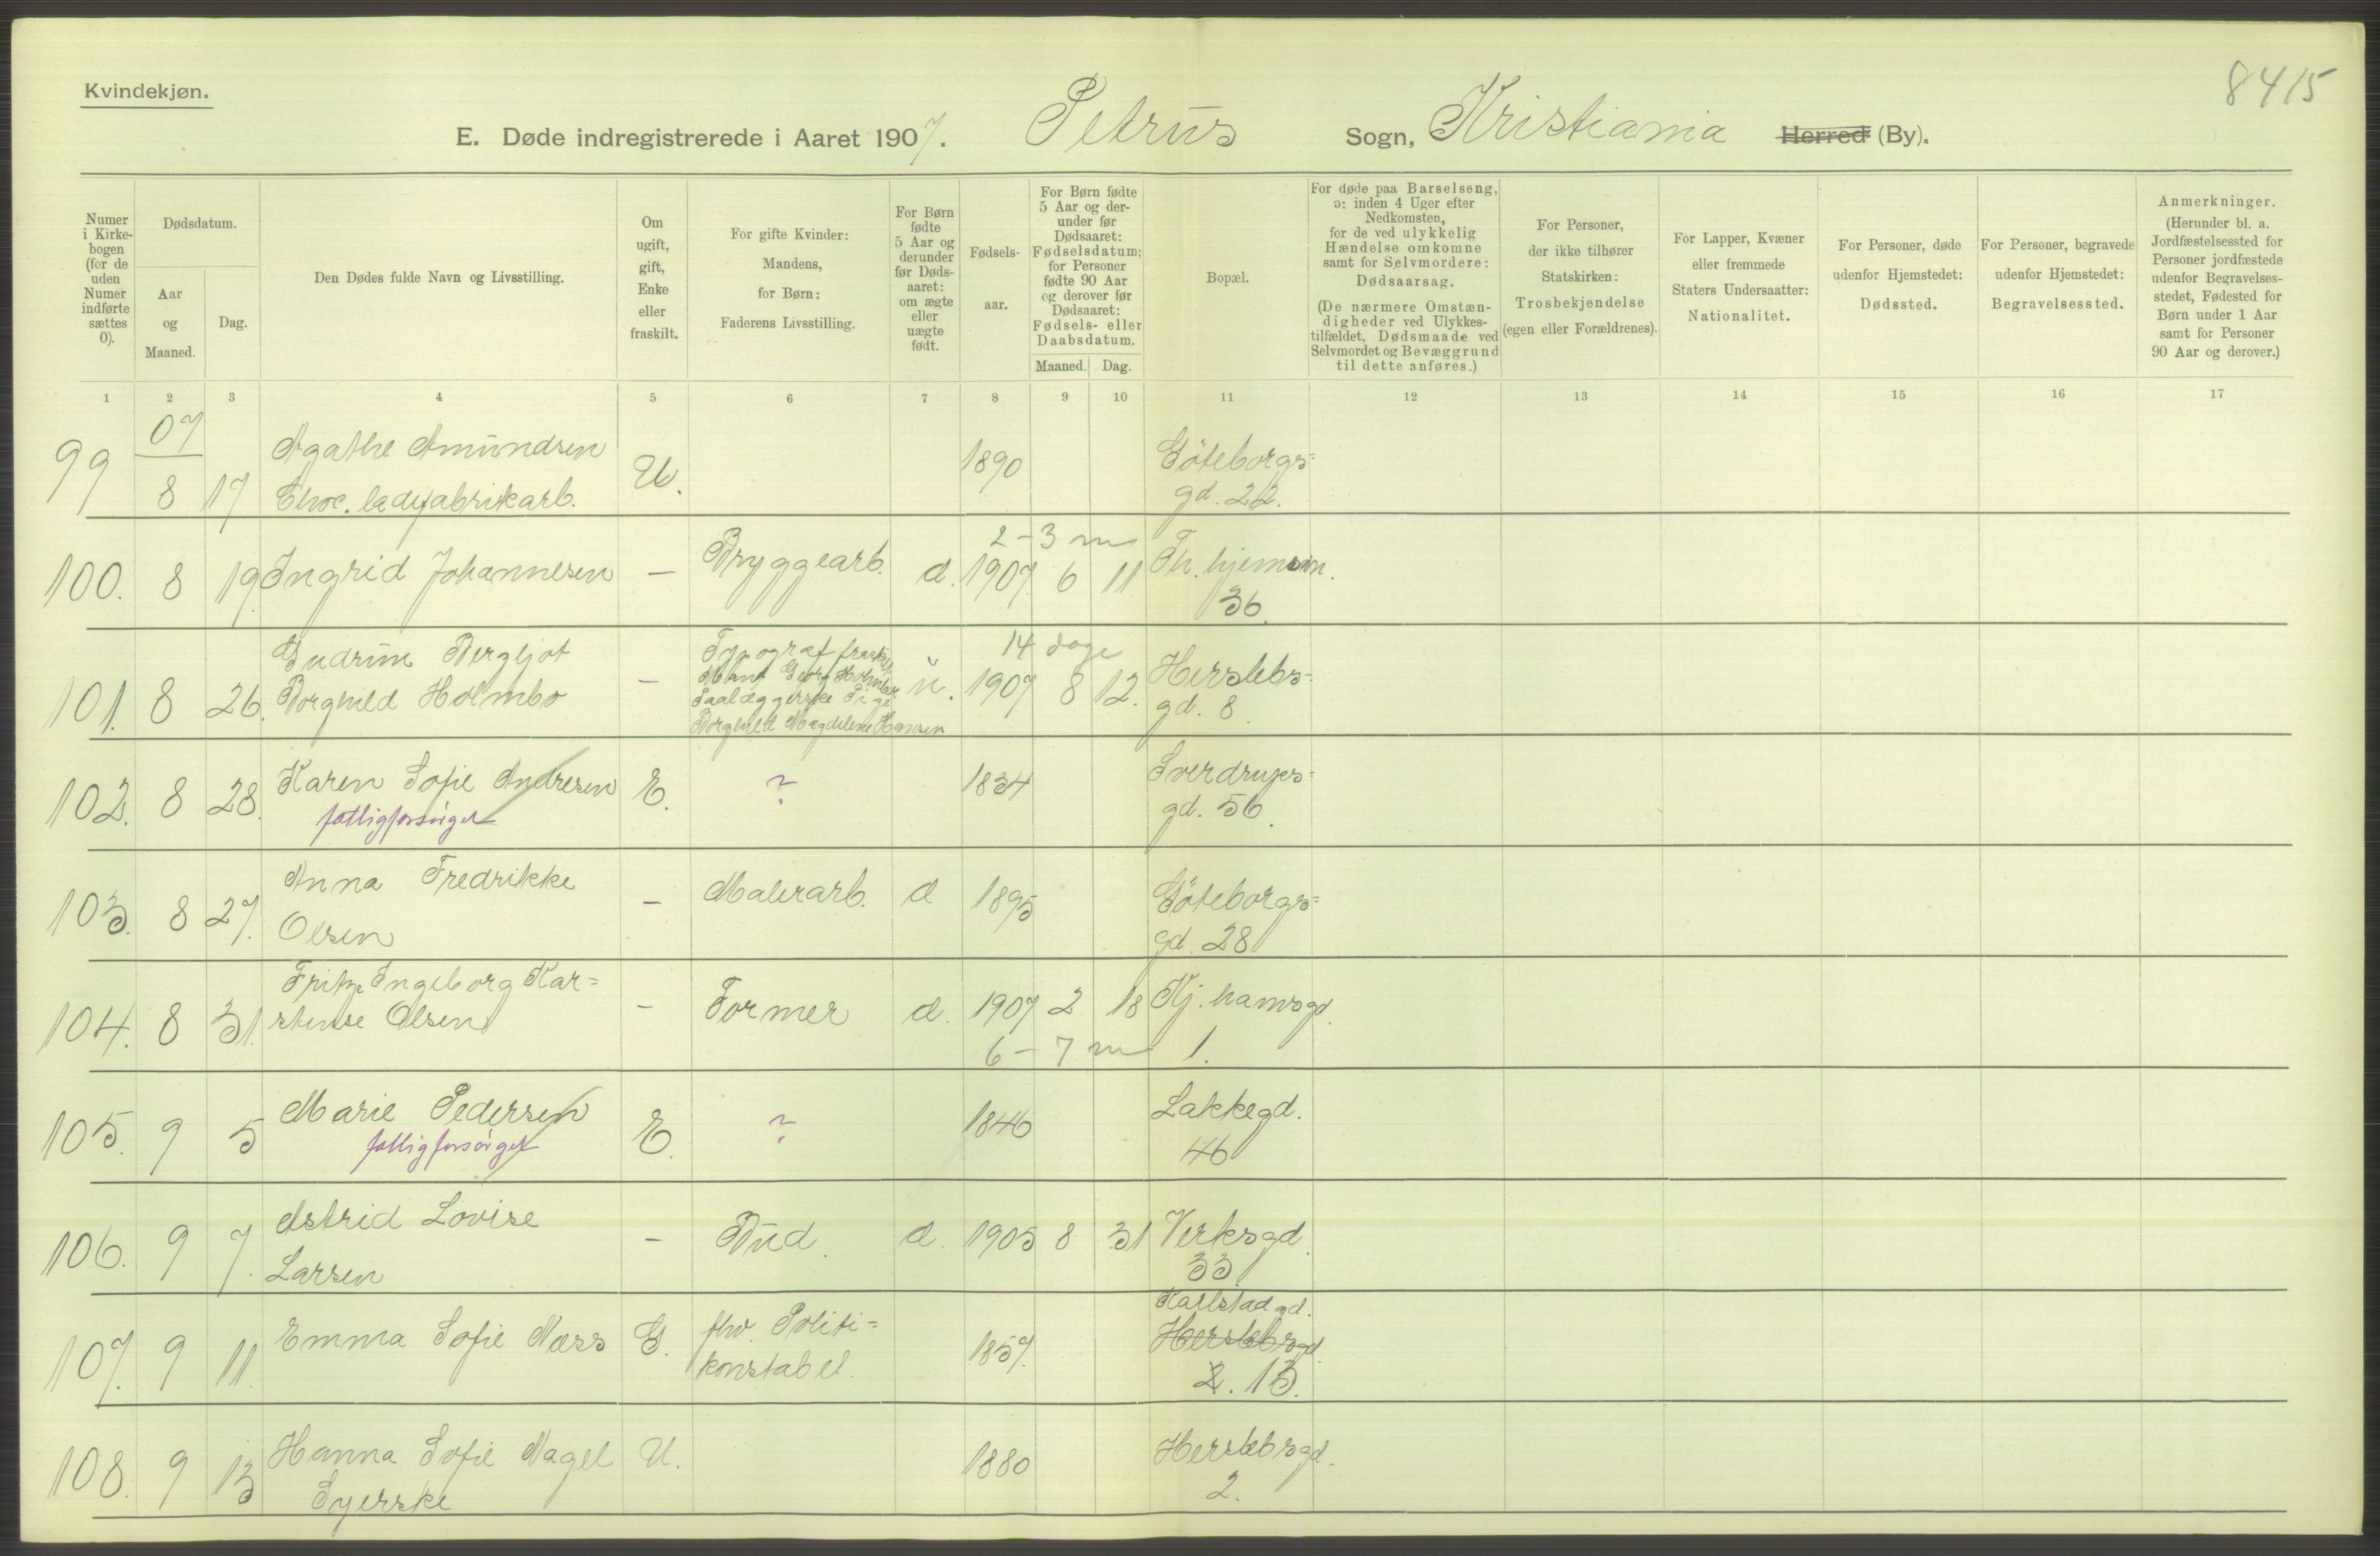 8415
Kvindekjøn.
E. Døde indregistrerede i Aaret 1907. Petrus Sogn, Kristiania Herred (By).
Numer i Kirke-bogen (for de uden Numer indførte sættes 0).
Dødsdatum.
Aar og Maaned.
Dag.
Den Dødes fulde Navn og Livsstilling.
Om ugift, gift, Enke eller fraskilt.
For gifte Kvinder: Mandens, for Børn: Faderens Livsstilling.
For Børn fødte 5 Aar og derunder før Døds-aaret: om ægte eller uægte født.
Fødsels-aar.
For Børn fødte 5 Aar og der-under før Dødsaaret: Fødselsdatum; for Personer fødte 90 Aar og derover før Dødsaaret: Fødsels- eller Daabsdatum.
Maaned. Dag.
Bopæl.
For døde paa Barselseng, ɔ: inden 4 Uger efter Nedkomsten, for de ved ulykkelig Hændelse omkomne samt for Selvmordere: Dødsaarsag.
(De nærmere Omstæn-digheder ved Ulykkes-tilfældet, Dødsmaade ved Selvmordet og Bevæggrund til dette anføres.)
For Personer, der ikke tilhører Statskirken: Trosbekjendelse (egen eller Forældrenes).
For Lapper, Kvæner eller fremmede Staters Undersaatter: Nationalitet.
For Personer, døde udenfor Hjemstedet: Dødssted.
For Personer, begravede udenfor Hjemstedet: Begravelsessted.
Anmerkninger.
(Herunder bl. a. Jordfæstelsessted for Personer jordfæstede udenfor Begravelses-stedet, Fødested for Børn under 1 Aar samt for Personer 90 Aar og derover.)
1 2 3 4 5 6 7 8 9 10 11 12 13 14 15 16 17
07
99 8 17 Agathe Amundsen U. 1890 Göteborgs=
Choc.ladefabrikarb. gd. 22.
2-3 m
100. 8 19. Ingrid Johannesen — Bryggearb. d. 1907 6 11 Th.hjemsvn.
36.
14 dage
101. 8 26. Gudrun Bergljot Typograf fraskilt
Borghild Holmbo — Mand Georg Holmbo u. 1907 8 12. Herslebs-
Saalæggerske Pige gd. 8.
Borghild Magdelene Hansen
102. 8 28. Karen Sofie Andresen E. ? 1834 Sverdrups=
fattigforsørget gd. 56.
103. 8 27. Anna Fredrikke — Malerarb. d 1895 Göteborgs=
Olsen gd. 28
104. 8 31. Fritze Ingeborg Kar=
stense Olsen — Former d. 1907 2 18 Kj.havnsgd.
6-7 m 1.
105. 9 5 Marie Pedersen E. ? 1846 Lakkegd.
fattigforsørget 46
106. 9 7. Astrid Lovise — Bud. d. 1905 8 31 Verksgd.
Larsen 33.
Karlstadgd.
107. 9 11. Emma Sofie Næss G. fhv. Politi= 1857. Herslebsgd.
konstabel. 2. 13.
108. 9 13 Hanna Sofie Nagel U. 1880 Herslebsgd.
Syerske 2.